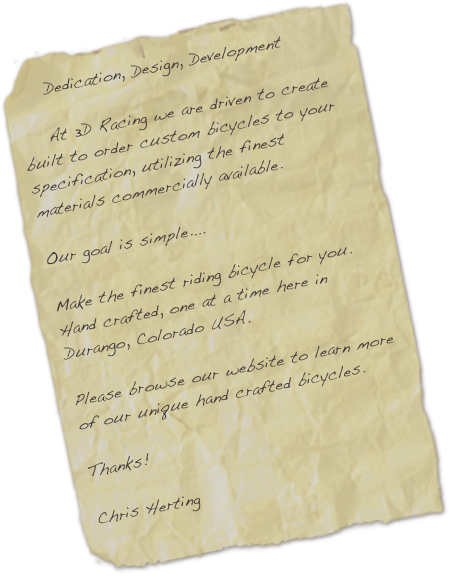 Dedication, Design, Development
At 3D Racing we are driven to create
built to order custom bicycles to your
specification, utilizing the finest
materials commercially available.
Our goal is simple....
Make the finest riding bicycle for you.
Hand crafted, one at a time here in
Durango, Colorado USA.
Please browse our website to learn more
of our unique hand crafted bicycles.
Thanks!
Chris Herting